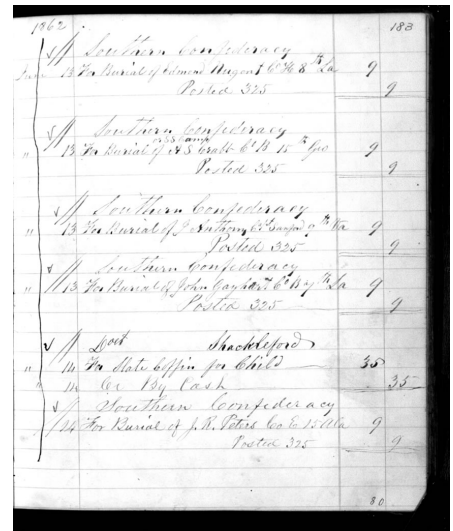 1862. 183
√ // Southern Confederacy
June 13 For Burial of Edmond Nugent Co H 8th La 9
Posted 325 9
√ // Southern Confederacy
" 13 For Burial of A S Crabb Co B 15th Geo 9
Posted 325 9
√ // Southern Confederacy
" 13 For Burial of J Anthony 9th Va 9
Posted 325 9
√ // Southern Confederacy
" 13 For Burial of John Gayhart Co B 9th La 9
Posted 325 9
√ // Doct Shackleford
" 14 For Slate Coffin for Child 35
" 14 Cr By Cash 35
√ // Southern Confederacy
14 For Burial of J. R. Peters Co E 15 Ala 9
Posted 325 9
80